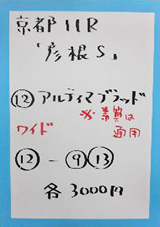 京都11R
「彦根S」
⑫アルティマブラッド
※素質は
通用
ワイド
⑫-⑨⑬
各3000円